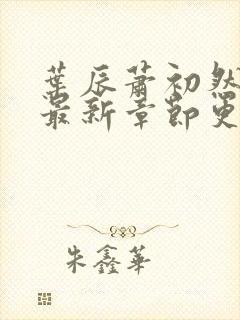 葉辰蕭初然
最新章節更
朱鑫華